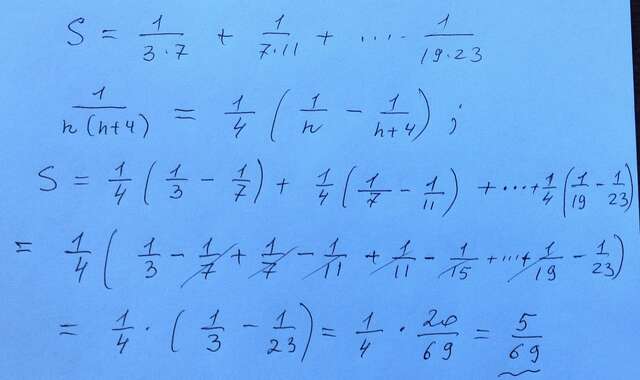 S = 1/(3·7) + 1/(7·11) + .... 1/(19·23)
1/(n(n+4)) = 1/4 (1/n - 1/(n+4)) ;
S = 1/4 (1/3 - 1/7) + 1/4 (1/7 - 1/11) + ... + 1/4 (1/19 - 1/23)
= 1/4 (1/3 - 1/7 + 1/7 - 1/11 + 1/11 - 1/15 + ... + 1/19 - 1/23)
= 1/4 · (1/3 - 1/23) = 1/4 · 20/69 = 5/69